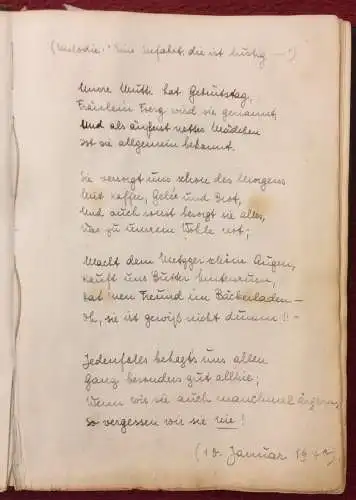 (Melodie: "Eine Seefahrt, die ist lustig —")
Unsre Mutti hat Geburtstag,
Fräulein Berg wird sie genannt,
Und als äußerst nettes Mädchen
Ist sie allgemein bekannt.
Sie versorgt uns schon des Morgens
Mit Kaffee, Gelée und Brot,
Und auch sonst besorgt sie alles,
Was zu unsrem Wohle not;
Macht dem Metzger schöne Augen,
Kauft uns Butter hintenrum,
Hat 'nen Freund im Bäckerladen —
Oh, sie ist gewiß nicht dumm!! —
Jedenfalls behagt's uns allen
Ganz besonders gut allhie;
Wenn wir sie auch manchmal ärgern,
So vergessen wir sie nie!
(10. Januar